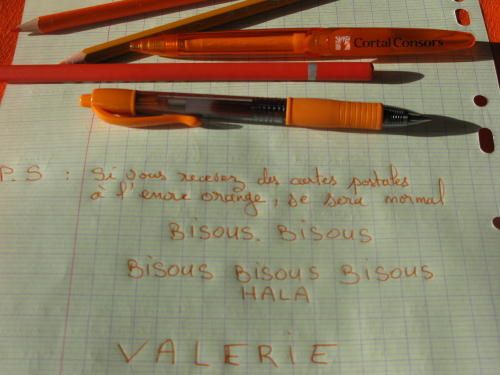 Cortal Consors
P.S : Si vous recevez des cartes postales
à l'encre orange, se sera normal
BISOUS. BISOUS
BISOUS BISOUS BISOUS
HALA
VALERIE